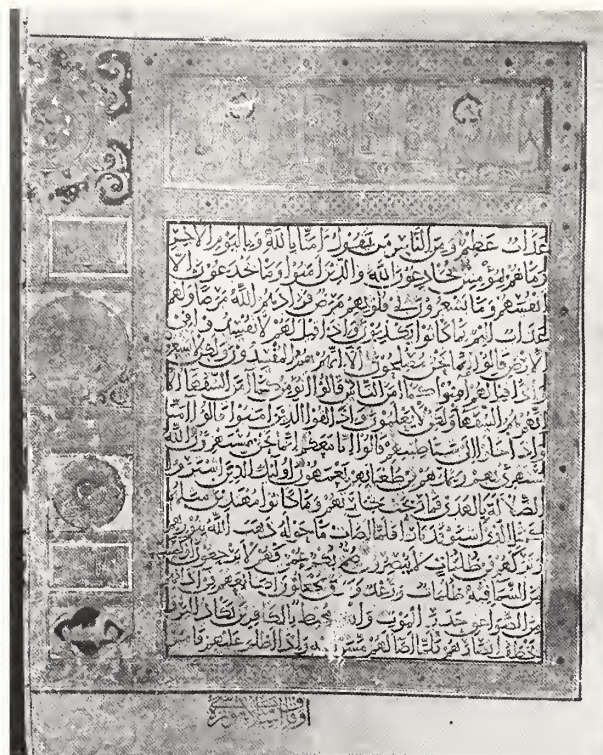 عذاب عظيم ومن الناس من يقول امنا بالله وباليوم الاخر
وما هم بمؤمنين يخادعون الله والذين امنوا وما يخدعون الا
انفسهم وما يشعرون في قلوبهم مرض فزادهم الله مرضا ولهم
عذاب اليم بما كانوا يكذبون واذا قيل لهم لا تفسدوا في
الارض قالوا انما نحن مصلحون الا انهم هم المفسدون ولكن لا يشعرون
واذا قيل لهم امنوا كما امن الناس قالوا انؤمن كما امن السفهاء الا
انهم هم السفهاء ولكن لا يعلمون واذا لقوا الذين امنوا قالوا امنا
واذا خلوا الى شياطينهم قالوا انا معكم انما نحن مستهزؤن الله
يستهزئ بهم ويمدهم في طغيانهم يعمهون اولئك الذين اشتروا
الضلالة بالهدى فما ربحت تجارتهم وما كانوا مهتدين مثلهم
كمثل الذي استوقد نارا فلما اضاءت ما حوله ذهب الله بنورهم
وتركهم في ظلمات لا يبصرون صم بكم عمي فهم لا يرجعون او كصيب
من السماء فيه ظلمات ورعد وبرق يجعلون اصابعهم في اذانهم
من الصواعق حذر الموت والله محيط بالكافرين يكاد البرق
يخطف ابصارهم كلما اضاء لهم مشوا فيه واذا اظلم عليهم قاموا